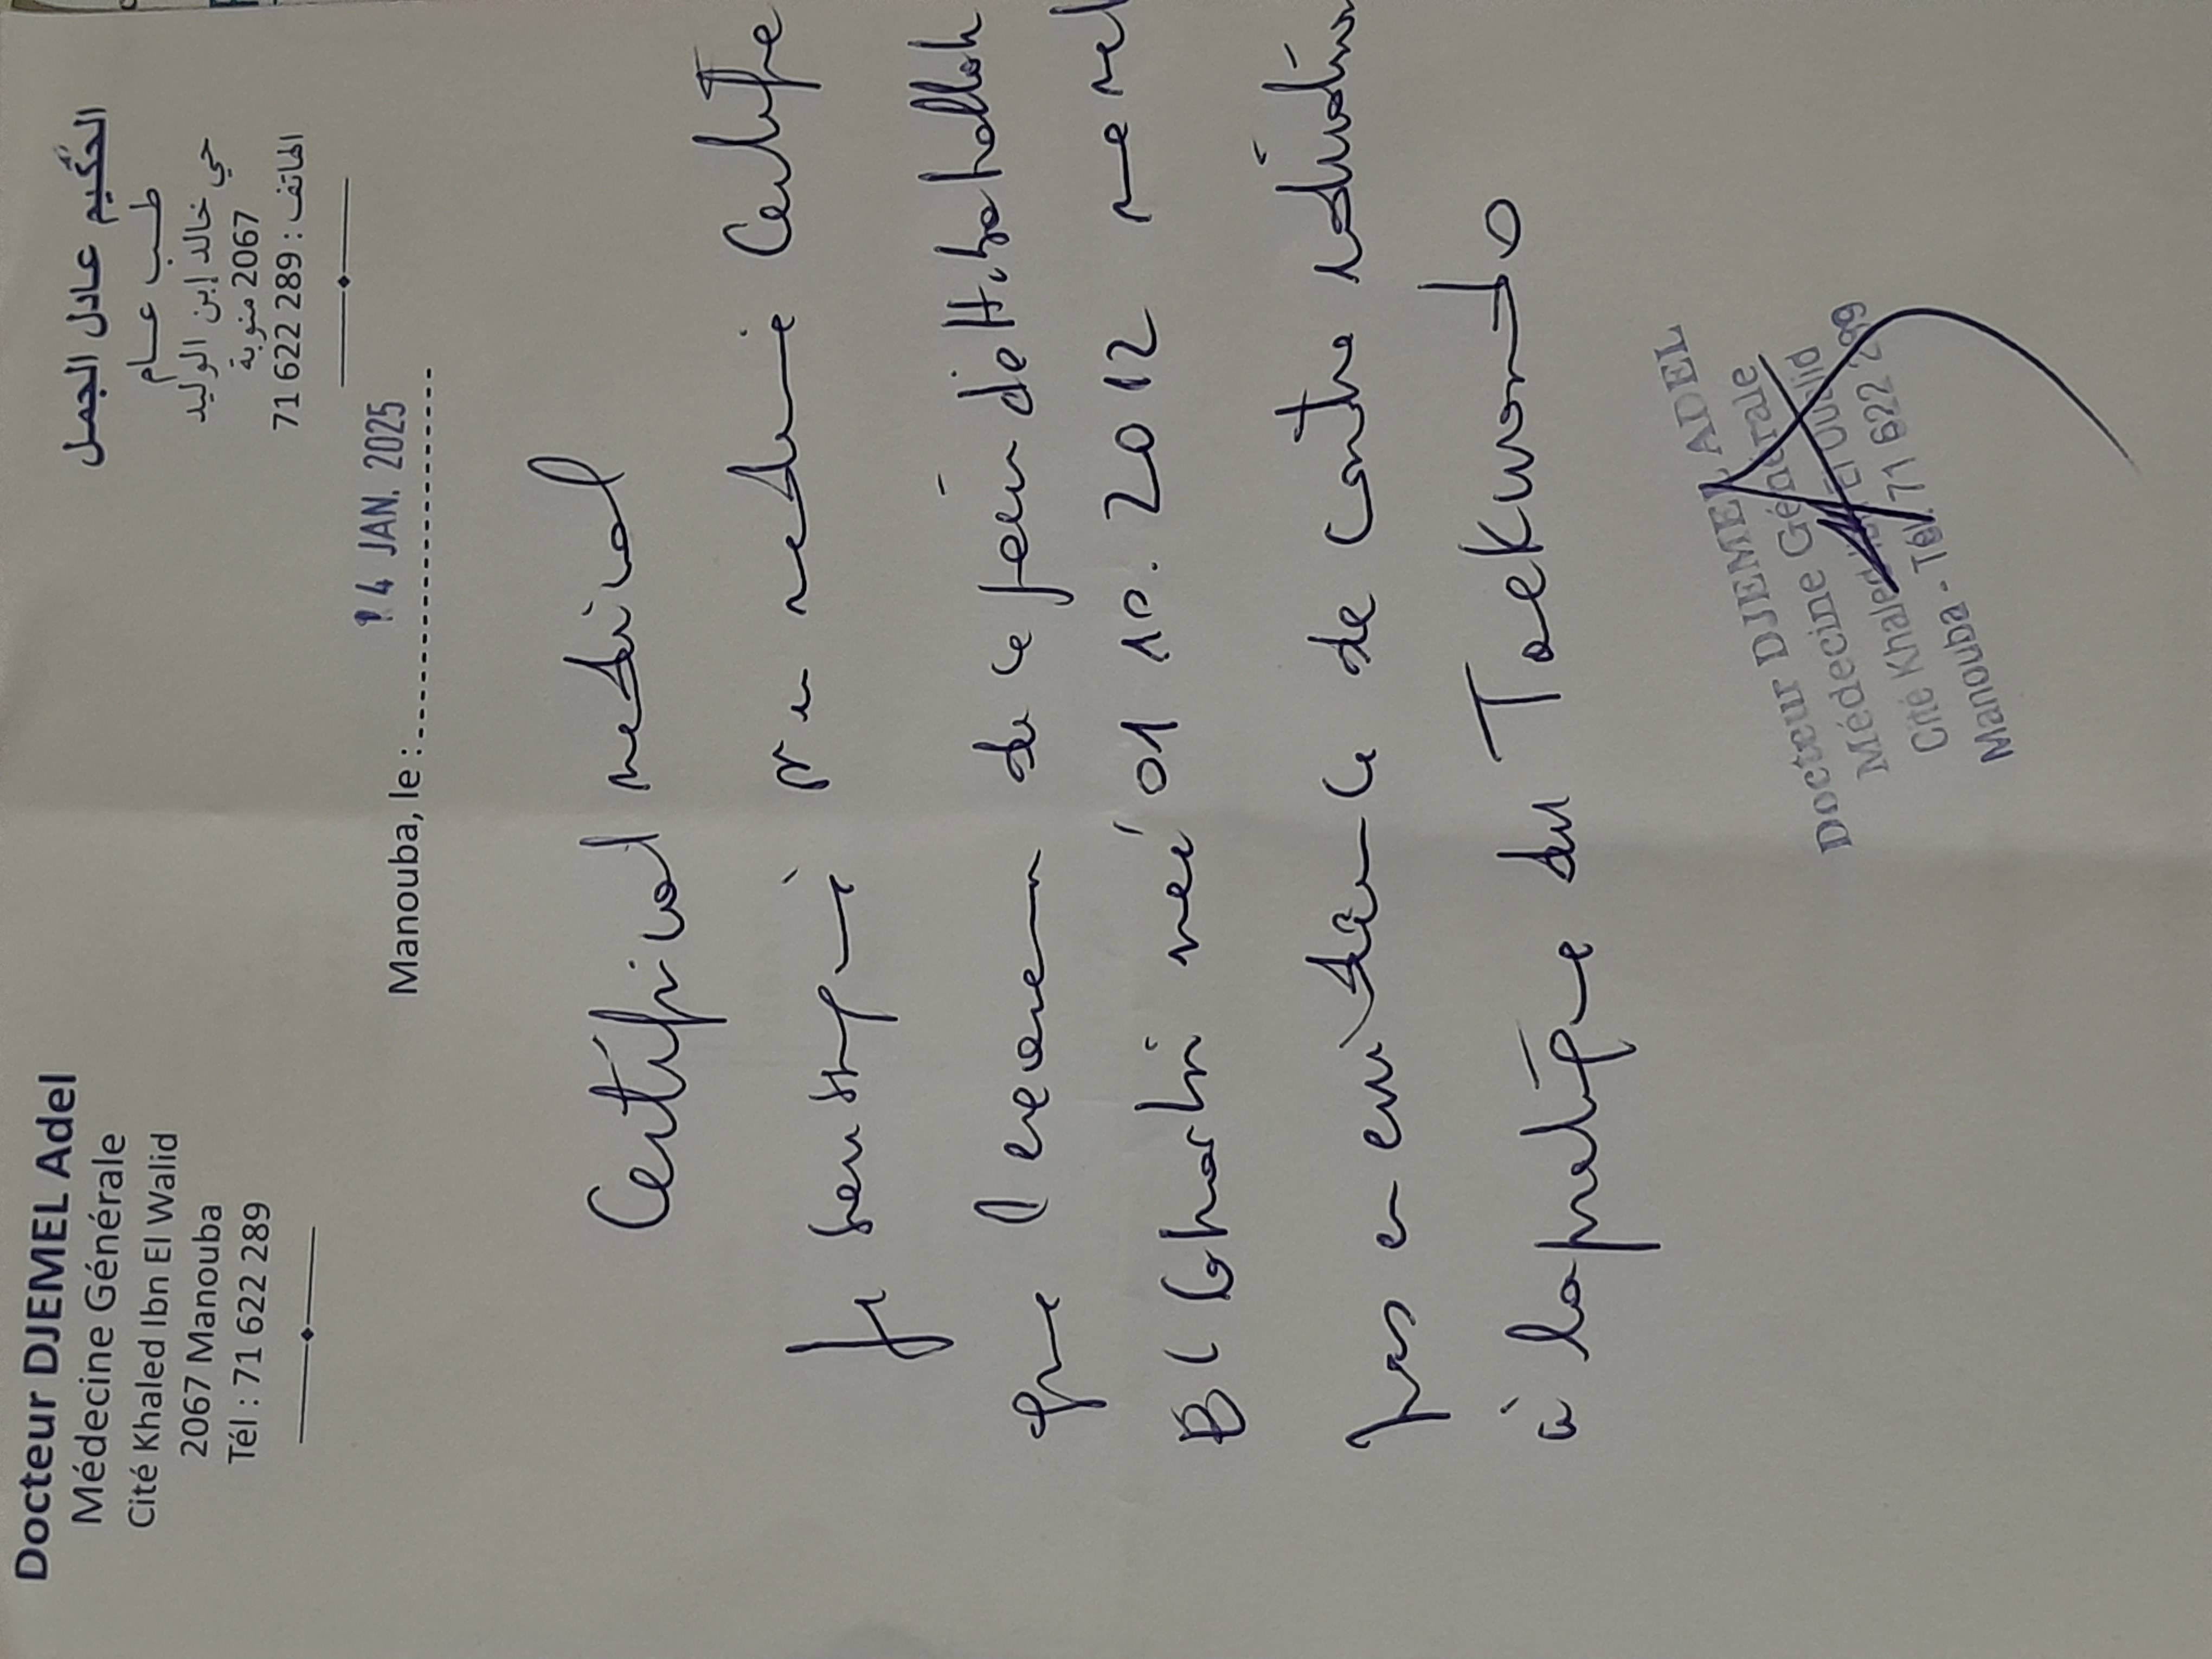 Docteur DJEMEL Adel
Médecine Générale
Cité Khaled Ibn El Walid
2067 Manouba
Tél : 71 622 289
الحكيم عادل الجمل
طب عام
حي خالد إبن الوليد
2067 منوبة
الهاتف : 289 622 71
Manouba, le :
14 JAN. 2025
Certificat medical
Je soussigné en medecine Certifie
que l'examen de ce jour de Hibatallah
El Gharbi née 01 10. 2012 ne met
pas en evidence de contre indication
à la pratique du Taekwondo
Docteur DJEMEL ADEL
Médecine Générale
Cité Khaled Ibn El Oualid
Manouba - Tél. 71 622 289